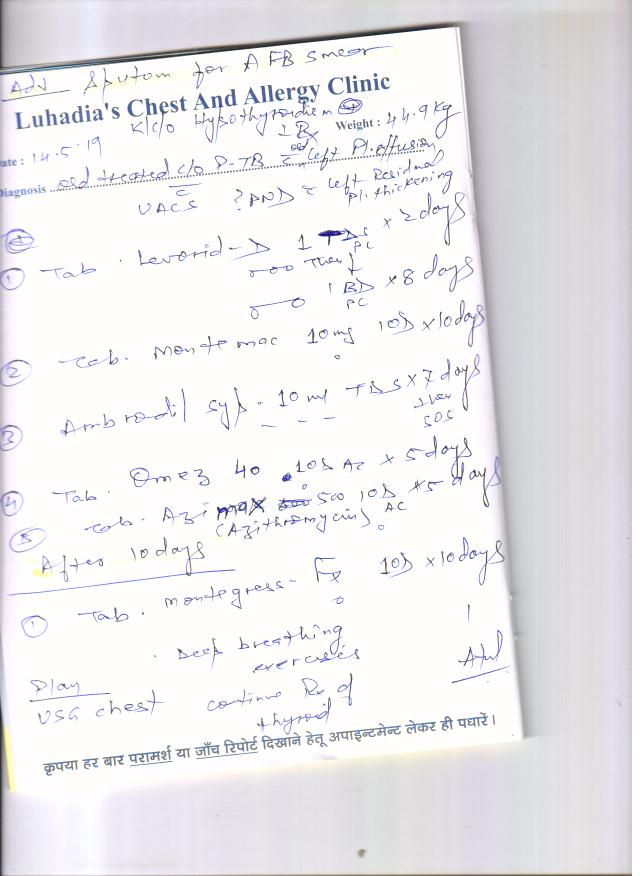 Adv Sputum for AFB smear
Luhadia's Chest And Allergy Clinic
K/c/o Hypothyroidism
Weight : 44.9 kg
ate : 14.5.19
on Rx
iagnosis old treated c/o P-TB c old left Pl. effusion
UACS ? PND c left Residual
Pl. thickening
① Tab. Levorid-D 1 TDS x 2 days
PC
then
1 BD x 8 days
PC
② Tab. Montemac 10mg 1OD x 10 days
③ Ambrodil syp - 10 ml TDS x 7 days
then
SOS
④ Tab. Omez 40 1OD AC x 5 days
⑤ Tab. Azimax 500 1OD x 5 days
(Azithromycin) AC
After 10 days
① Tab. Montegress-Fx 1OD x 10 days
. Deep breathing
exercises
Plan
USG chest continue Rx of
thyroid
कृपया हर बार परामर्श या जाँच रिपोर्ट दिखाने हेतू अपाइन्टमेन्ट लेकर ही पधारें।